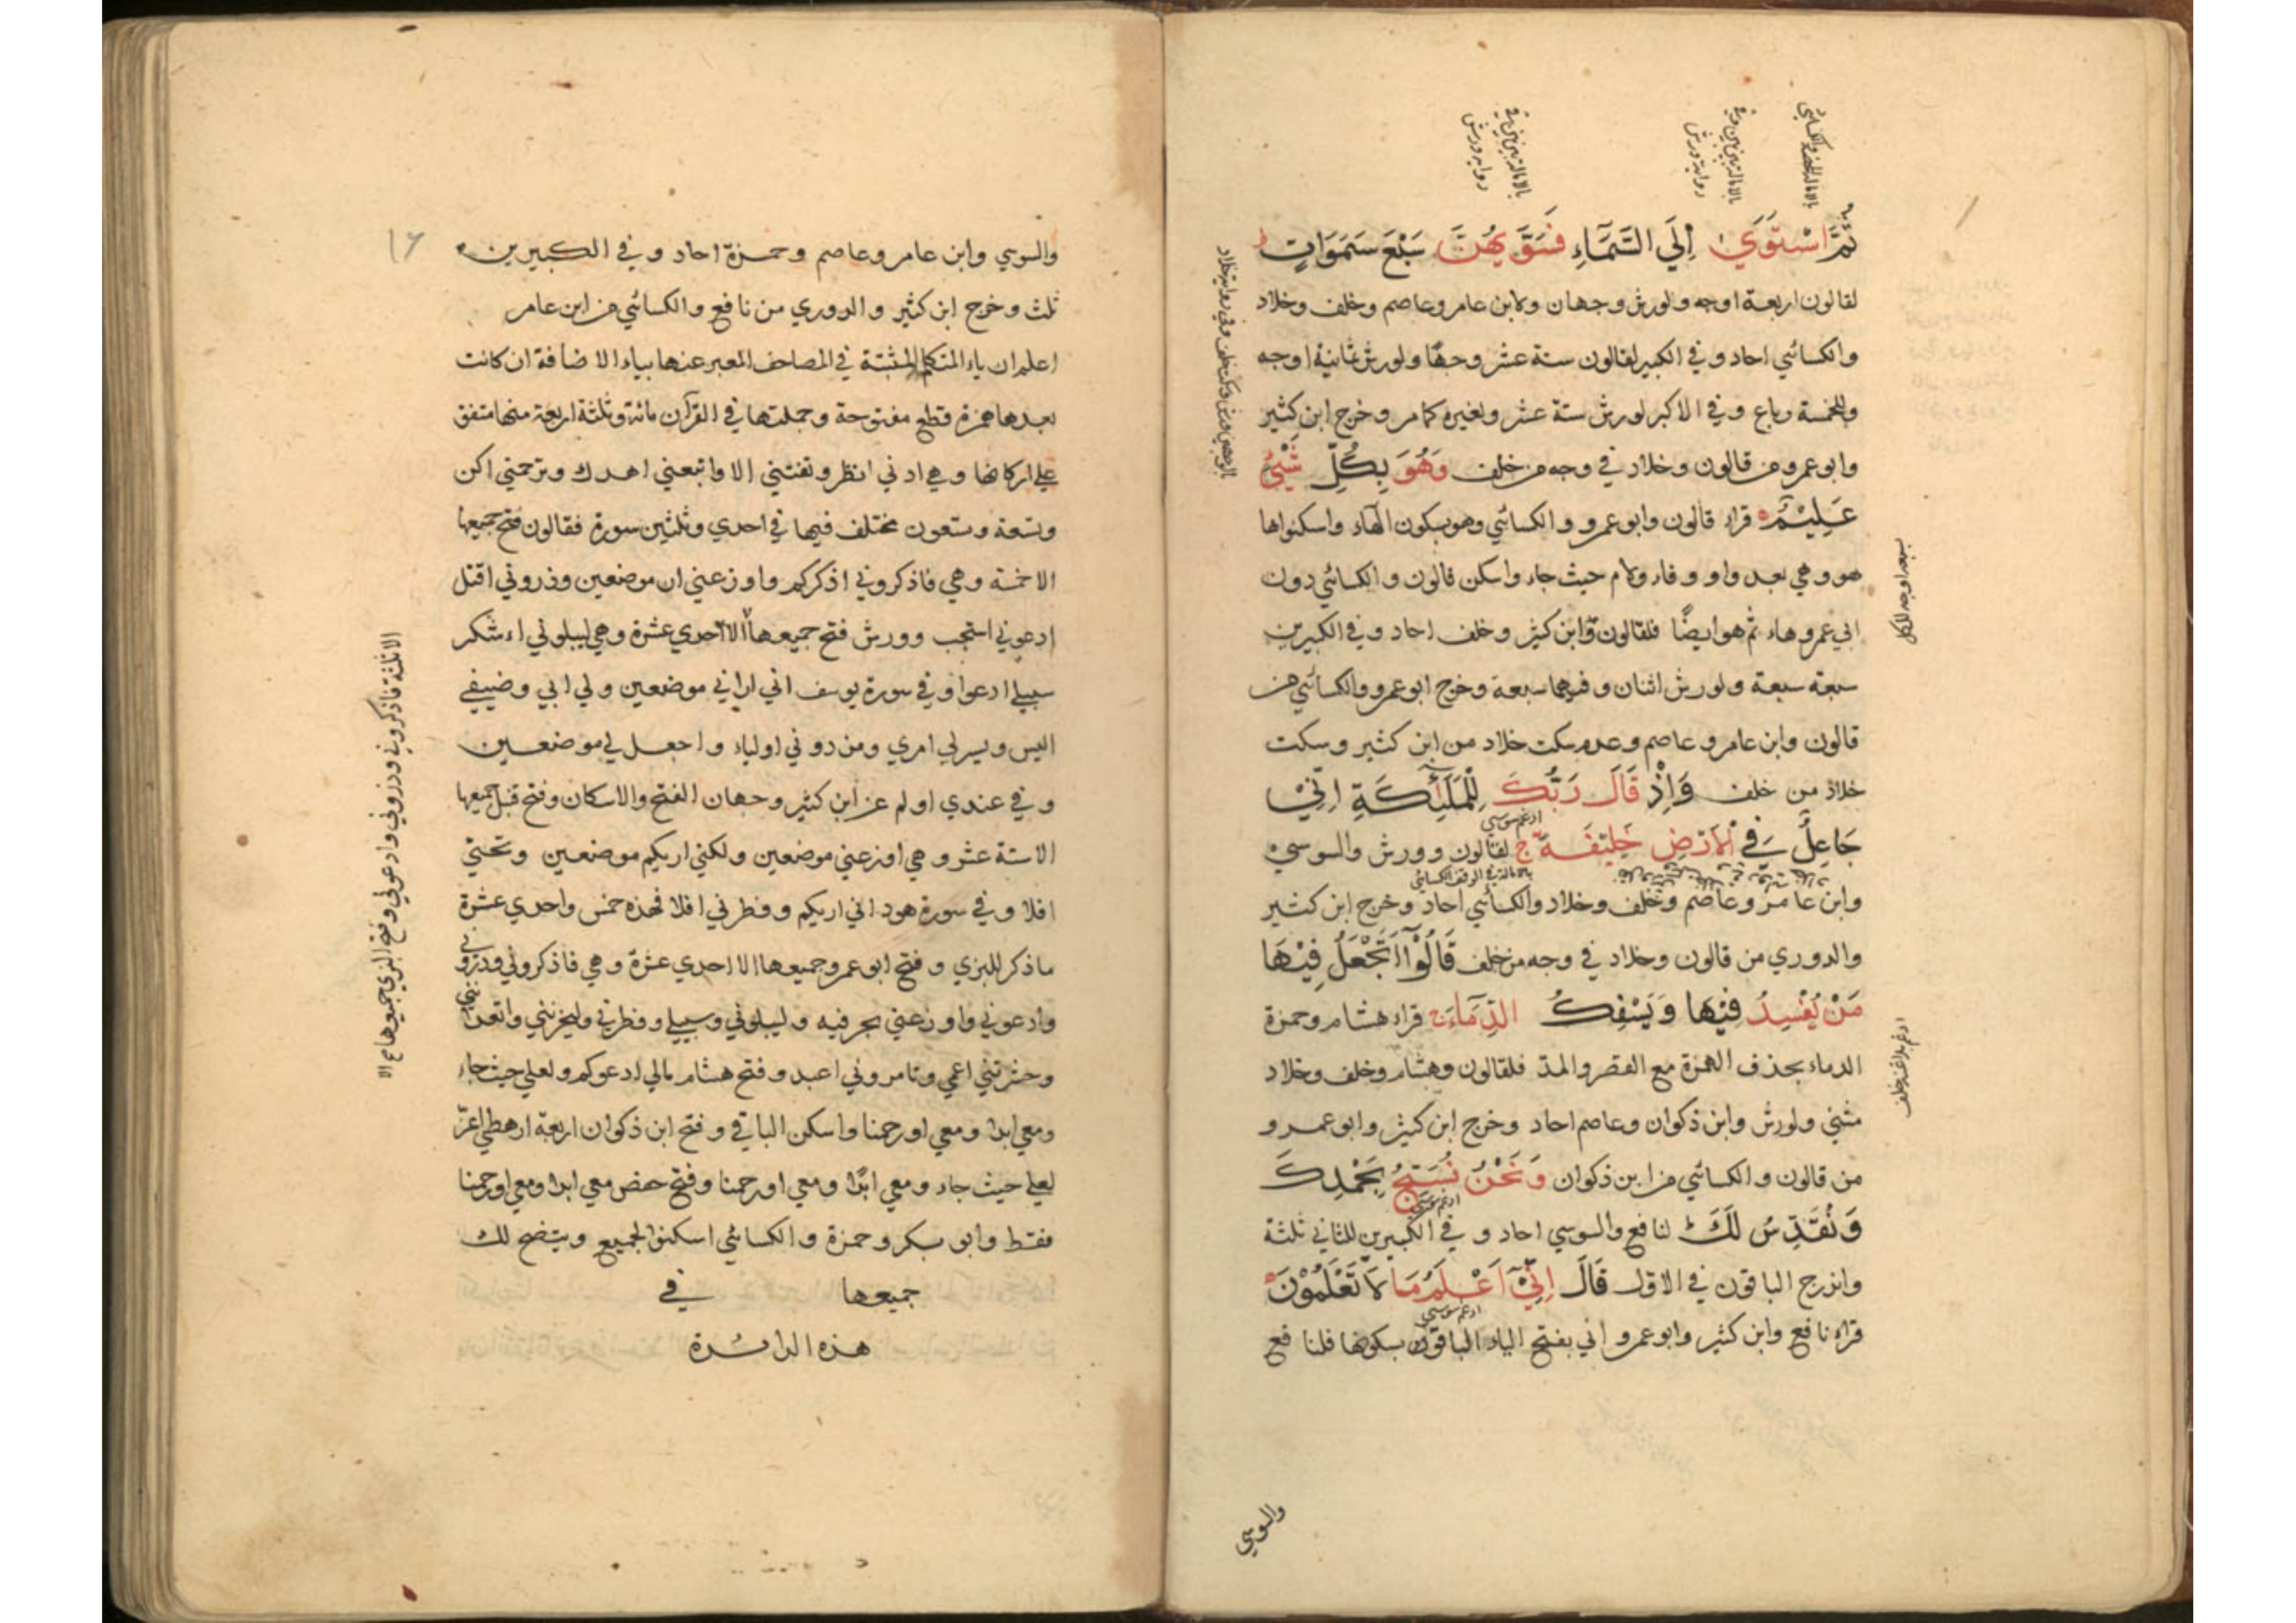 ثُمَّ اسْتَوَىٰ اِلَى السَّمَآءِ فَسَوّٰىهُنَّ سَبْعَ سَمٰوَاتٍ ط
لقالون اربعة اوجه ولورش وجهان ولابن عامر وعاصم وخلف وخلاد
والكسائي احاد و في الكبير لقالون ستة عشر وجهًا ولورش ثمانية اوجه
وللخمسة رباع و في الاكبر لورش ستة عشر ولغيره كما مر وخرج ابن كثير
وابو عمرو من قالون وخلاد في وجه من خلف وَهُوَ بِكُلِّ شَيْءٍ
عَلِيْمٌ قراء قالون وابو عمرو والكسائي وهو بسكون الهاء واسكنوا ها
هو و هي بعد واو و فاء ولام حيث جاء واسكن قالون والكسائي دون
ابي عمرو هاء ثم هو ايضًا فلقالون وابن كثير وخلف احاد و في الكبيرين
سبعة سبعة ولورش اثنان و فيهما سبعة وخرج ابو عمرو والكسائي من
قالون وابن عامر و عاصم وعدم سكت خلاد من ابن كثير وسكت
خلاد من خلف وَاِذْ قَالَ رَبُّكَ لِلْمَلٰٓئِكَةِ اِنِّيْ
جَاعِلٌ فِي الْاَرْضِ خَلِيْفَةً ج لقالون وورش والسوسي
وابن عامر وعاصم وخلف وخلاد والكسائي احاد وخرج ابن كثير
والدوري من قالون وخلاد في وجه من خلف قَالُوْٓا اَتَجْعَلُ فِيْهَا
مَنْ يُفْسِدُ فِيْهَا وَيَسْفِكُ الدِّمَآءَ قراء هشام وحمزة
الدماء بحذف الهمزة مع القصر والمد فلقالون وهشام وخلف وخلاد
مثنى ولورش وابن ذكوان وعاصم احاد وخرج ابن كثير وابو عمرو
من قالون والكسائي من ابن ذكوان وَنَحْنُ نُسَبِّحُ بِحَمْدِكَ
وَنُقَدِّسُ لَكَ ط لنافع والسوسي احاد و في الكبيرين للثاني ثلثة
واندرج الباقون في الاول قَالَ اِنِّيْٓ اَعْلَمُ مَا لَا تَعْلَمُوْنَ
قراء نافع وابن كثير وابو عمرو اني بفتح الياء الباقون بسكونها فلنافع
والسوسي
بالامالة المحضة والكسائي
بالامالة بين بين في رواية ورش
بالامالة بين بين في رواية ورش
سبعة اوجه للكل
ادغم بلا غنة خلف
ادغم سوسي
بالامالة في الوقف الكسائي
ادغم سوسي
ادغم سوسي
١٦
والسوسي وابن عامر وعاصم وحمزة احاد و في الكبيرين
ثلث وخرج ابن كثير والدوري من نافع والكسائي من ابن عامر
اعلم ان ياء المتكلم المثبتة في المصاحف المعبر عنها بياء الاضافة ان كانت
بعدها همزة قطع مفتوحة وجملتها في القرآن مائة وثلثة اربعة منها متفق
على اركانها وهي ادني انظر وتفتني الا واتبعني اهدك وترحمني اكن
وتسعة وتسعون مختلف فيها في احدي وثلثين سورة فقالون فتح جميعها
الا خمسة وهي فاذكروني اذكركم واوزعني ان موضعين وذروني اقتل
ادعوني استجب وورش فتح جميعها الا احدي عشرة وهي ليبلوني ءاشكر
سبيلي ادعوا و في سورة يوسف اني اراني موضعين ولي ابي وضيفي
اليس ويسر لي امري ومن دوني اولياء واجعل لي موضعين
و في عندي اولم عن ابن كثير وجهان الفتح والاسكان وفتح قنبل جميعها
الا ستة عشر و هي اوزعني موضعين ولكني اريكم موضعين وتحتي
افلا و في سورة هود اني اريكم وفطرني افلا فهذه خمس واحدي عشرة
ما ذكر للبزي وفتح ابو عمرو جميعها الا احدي عشرة وهي فاذكروني وذروني
وادعوني واوزعني بحرفيه وليبلوني وسبيلي وفطرني وليحزنني واتعدانني
وحشرتني اعمي وتامروني اعبد وفتح هشام مالي ادعوكم ولعلي حيث جاء
ومعي ابدا ومعي اورحمنا واسكن الباقي وفتح ابن ذكوان اربعة ارهطي اعز
لعلي حيث جاء ومعي ابدًا ومعي اورحمنا وفتح حفص معي ابدا ومعي اورحمنا
فقط وابو بكر وحمزة والكسائي اسكنوا الجميع ويتضح لك
جميعها في
هذه الدائرة
الا ثلثة فاذكروني وذروني وادعوني وفتح البزي جميعها الا